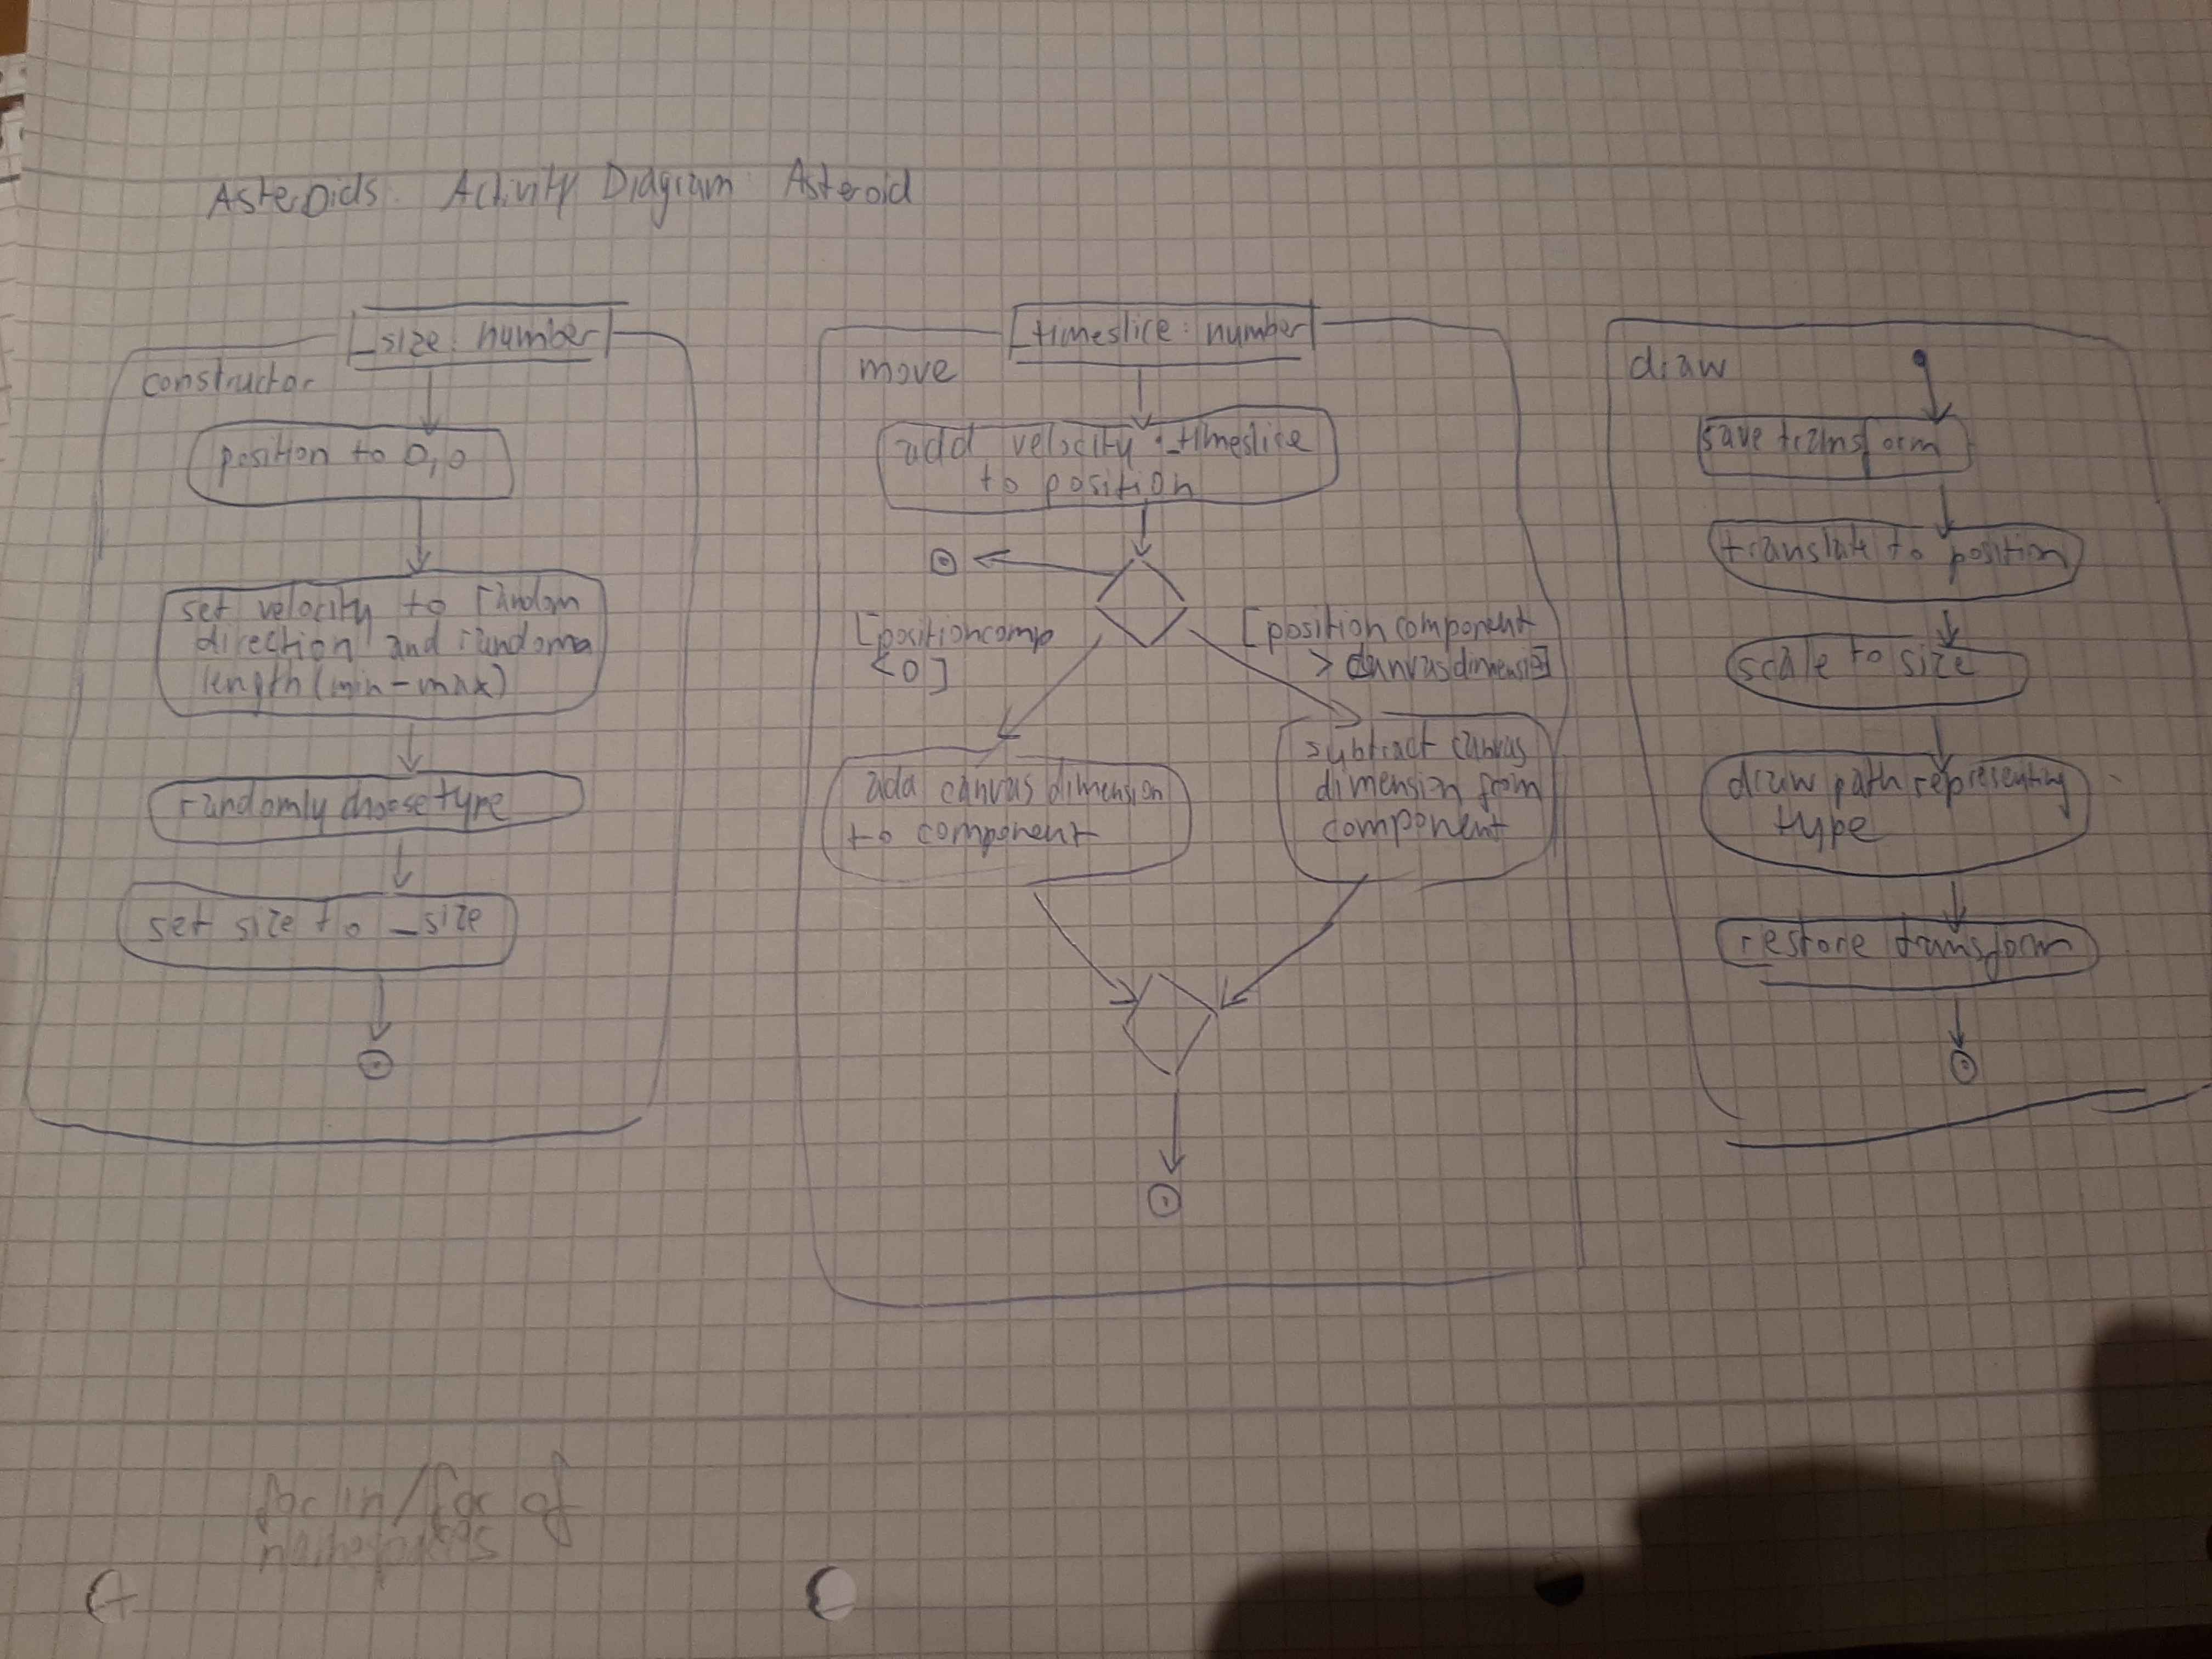 Asteroids Activity Diagram Asteroid
_size: number
constructor
position to 0,0
set velocity to random
direction and randoma
length (min-max)
randomly choose type
set size to _size
_timeslice: number
move
add velocity * _timeslice
to position
[positioncomp
<0]
[position component
> canvasdimensio]
add canvas dimension
to component
subtract canvas
dimension from
component
draw
save transform
translate to position
scale to size
draw path representing
type
restore transform
for in/for of
namespaces